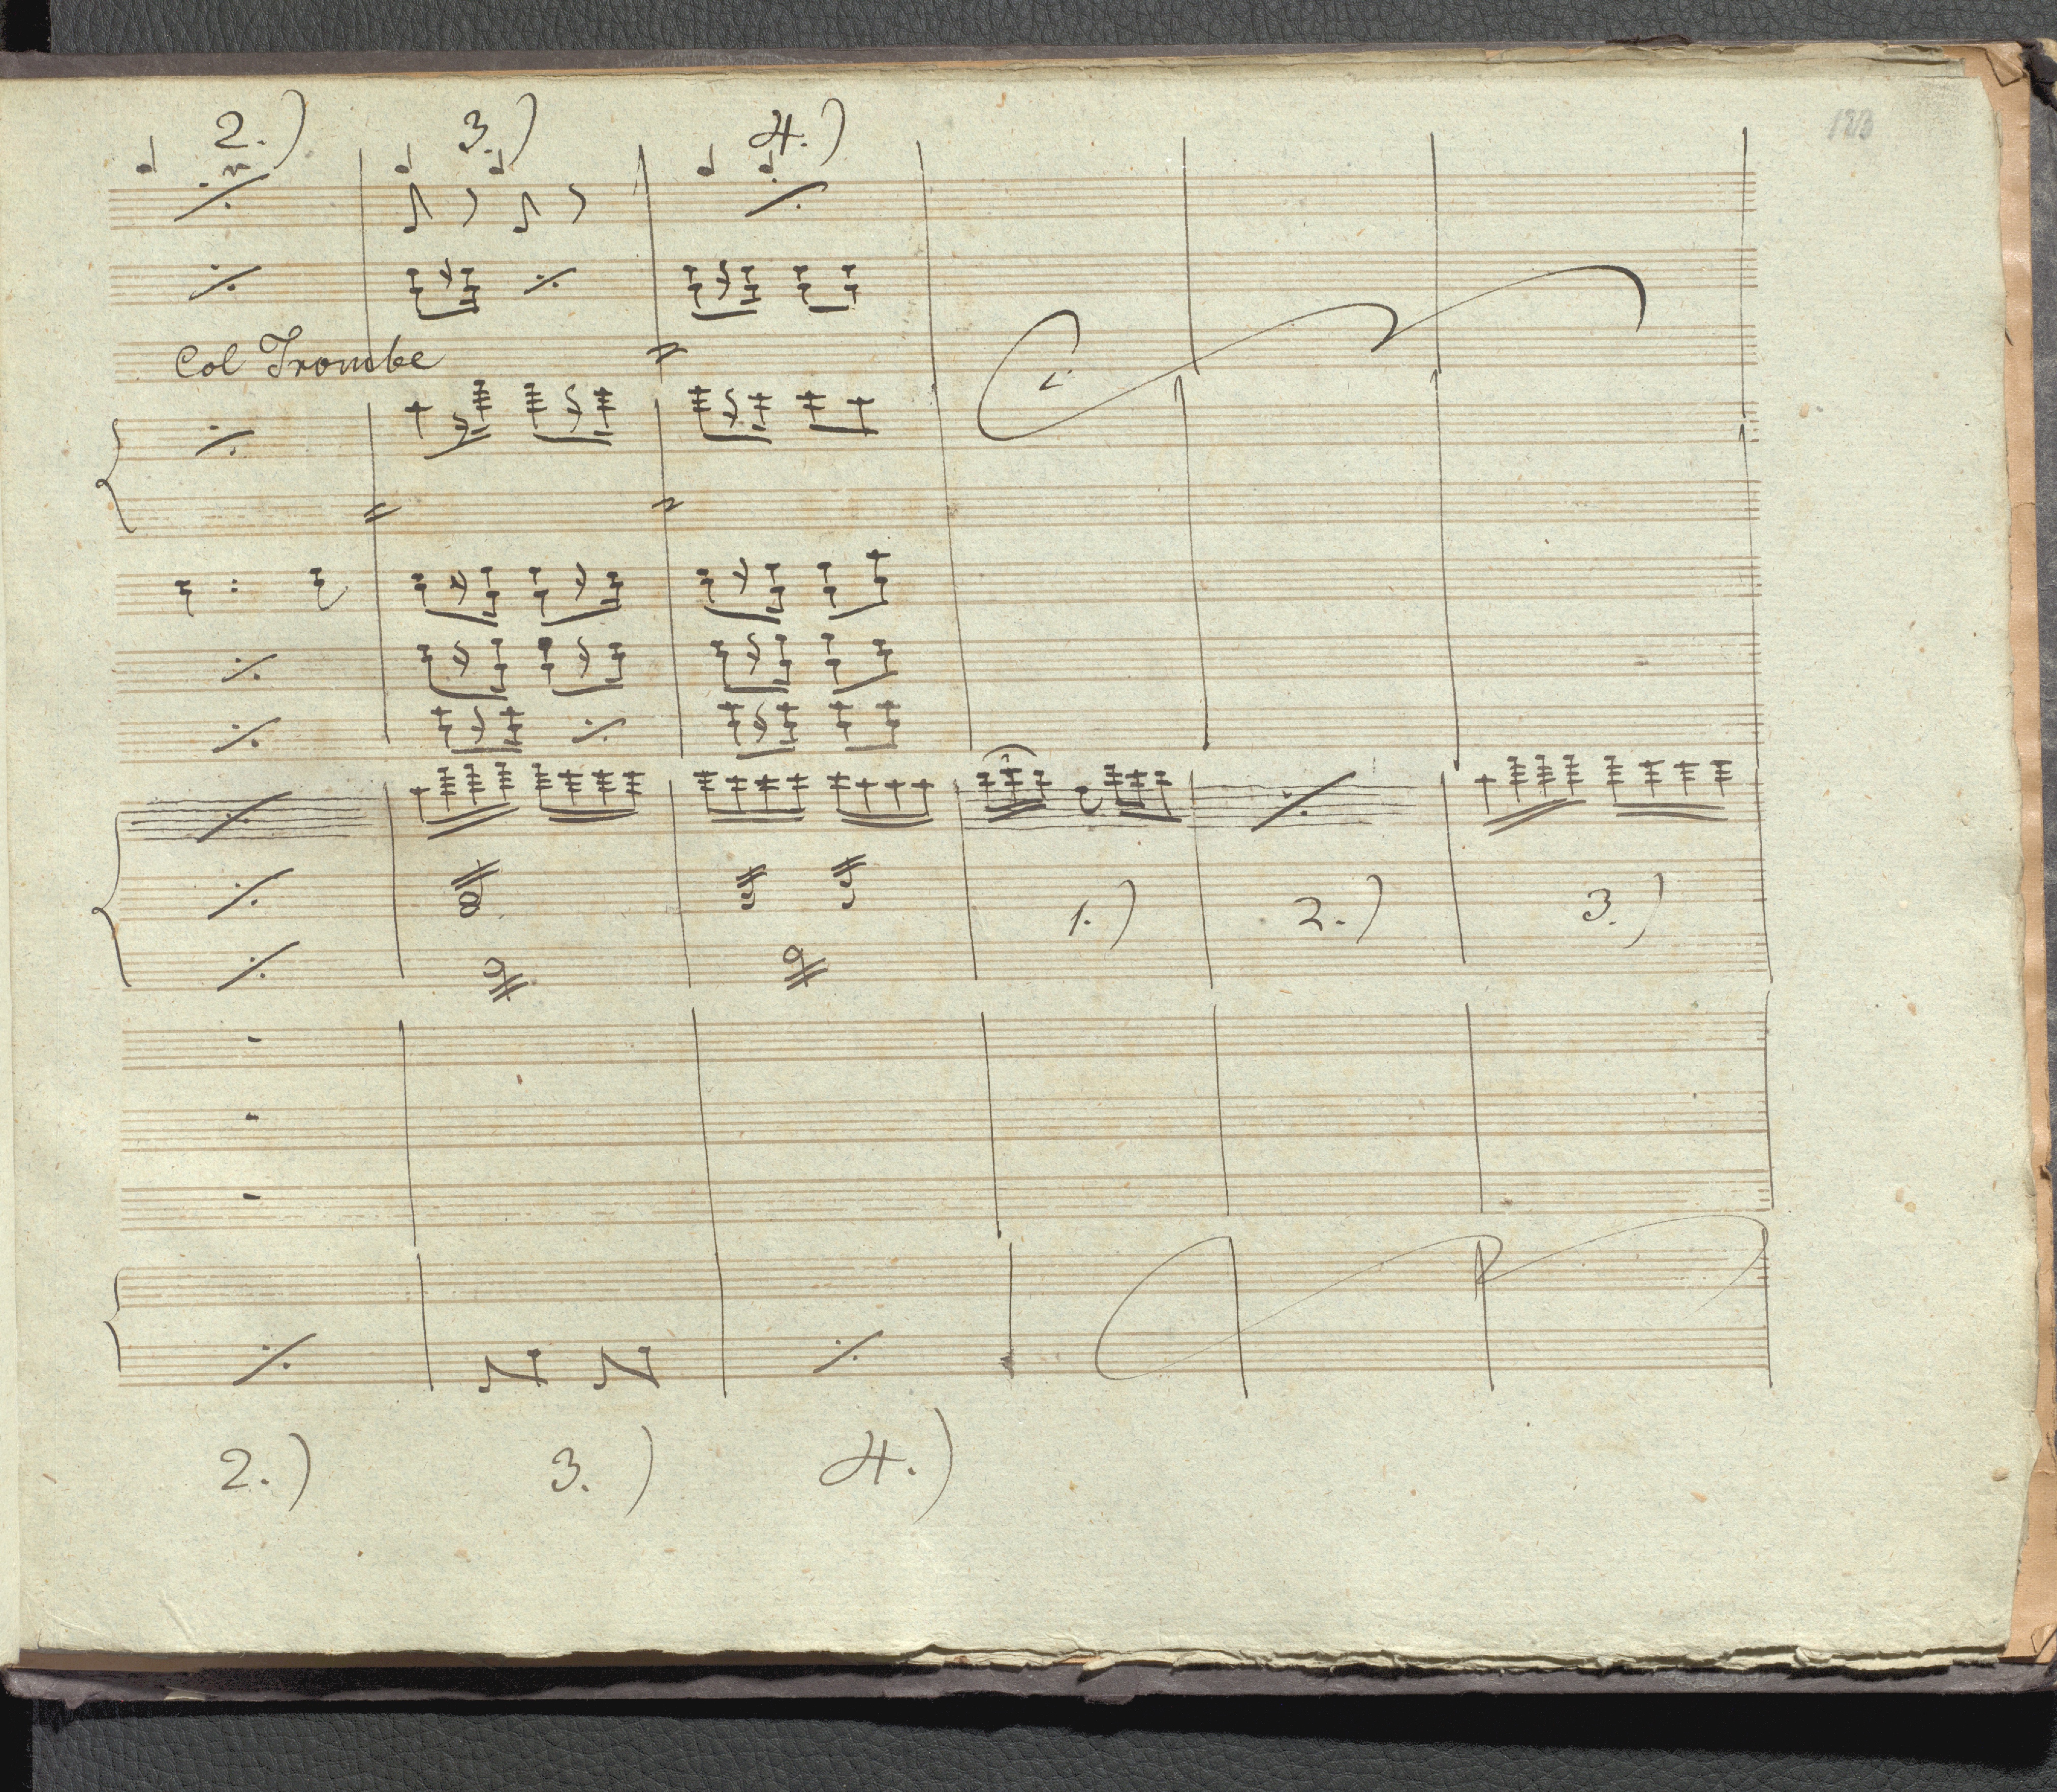 2.) 3.) 4.)
Col Trombe
1.) 2.) 3.)
2.) 3.) 4.)